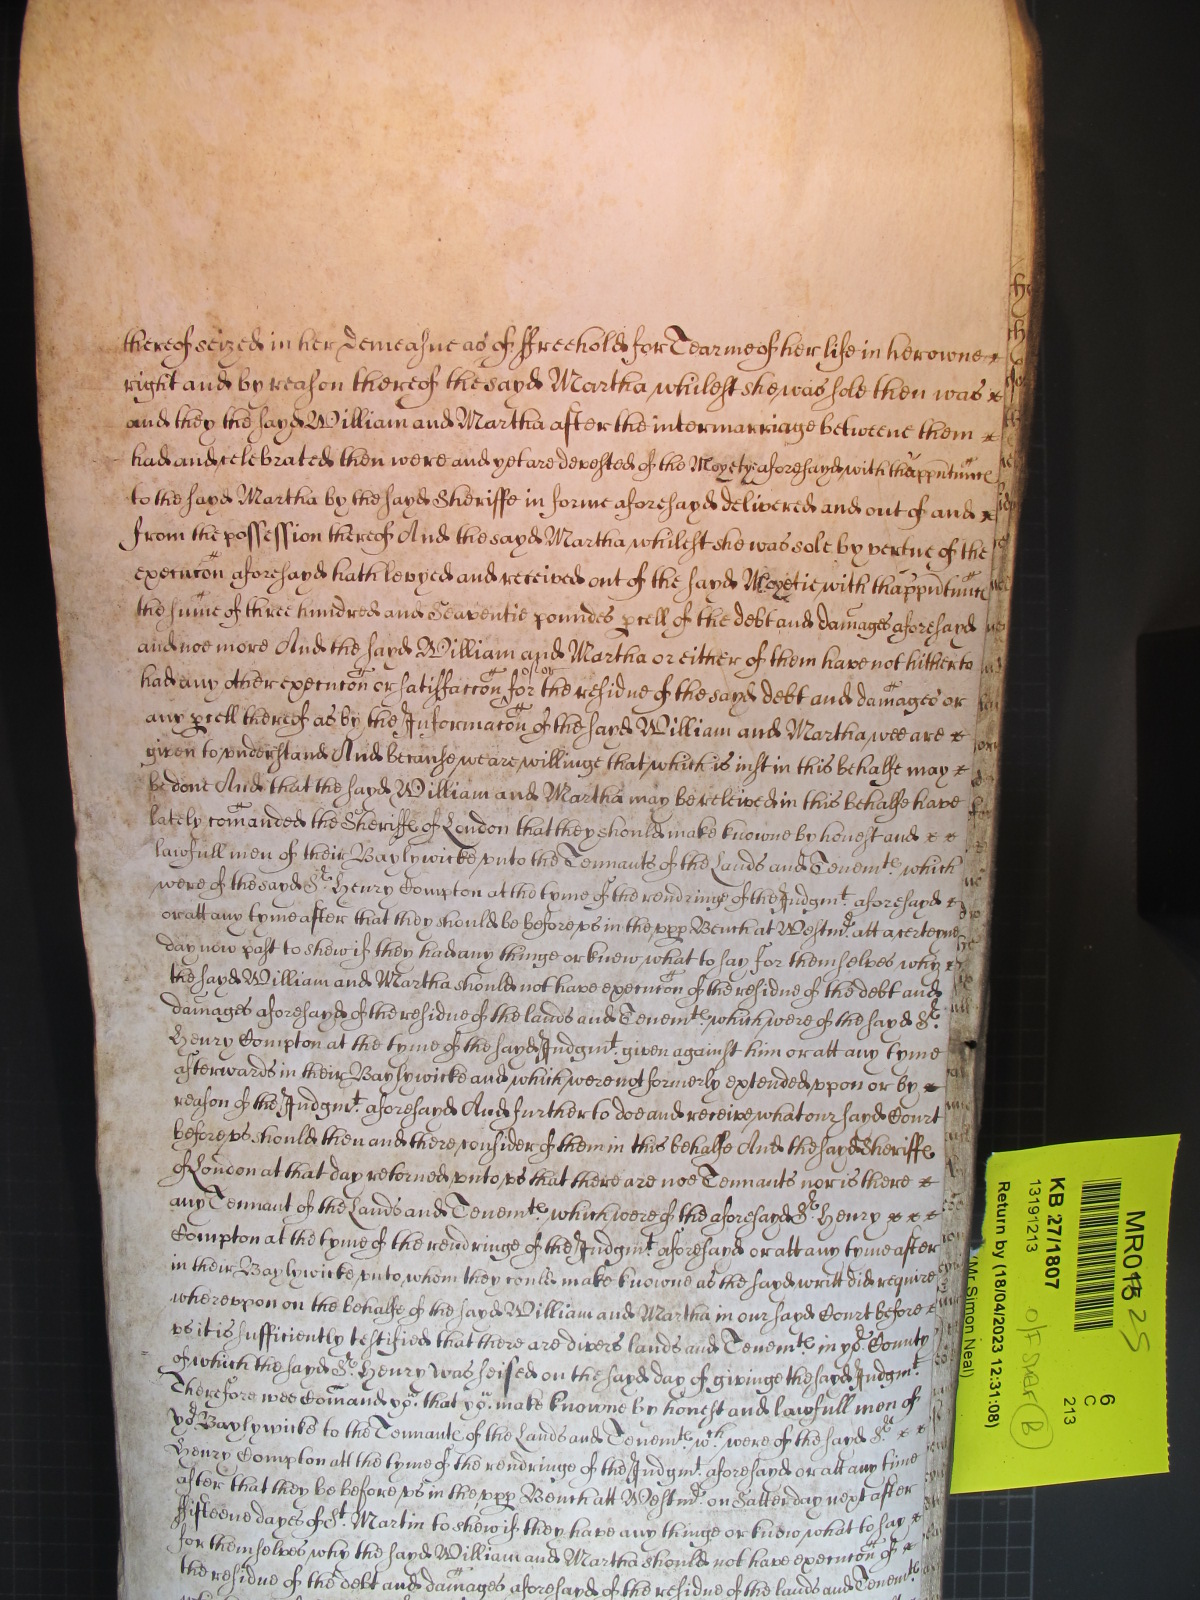 thereof seized in her Demeasne as of ffreehold for Tearme of her life in her owne
right and by reason thereof the sayd Martha whilest she was sole then was
and they the sayd William and Martha after the intermarriage betweene them
had and celebrated then were and yet are possessed of the Moyety aforesayd with thappurtnnce
to the sayd Martha by the sayd Sheriffe in forme aforesayd delivered and out of and
from the possession thereof And the sayd Martha whilest she was sole by vertue of the
execucon aforesayd hath levyed and received out of the sayd Moyetie with thappurtnnce
the sume of three hundred and Seaventie poundes pcell of the debt and damages aforesayd
and noe more And the sayd William and Martha or either of them have not hitherto
had any other execucon or satisfaccon of or for the residue of the sayd debt and damages or
any pcell thereof as by the Informacon of the sayd William and Martha wee are
given to vnderstand And because we are willinge that which is iust in this behalfe may
be done And that the sayd William and Martha may be releived in this behalfe have
lately comanded the Sheriffe of London that they should make knowne by honest and
lawfull men of their Baylywicke vnto the Tennants of the Lands and Tenemte which
were of the sayd Sr Henry Compton at the tyme of the rendringe of the Judgmt aforesayd
or att any tyme after that they should be before vs in the vpp Bench at Westmr att a certeyne
day now past to shew if they had any thinge or knew what to say for themselves why
the sayd William and Martha should not have execucon of the residue of the debt and
damages aforesayd of the residue of the lands and Tenemte which were of the sayd Sr
Henry Compton at the tyme of the sayd Judgmt given against him or att any tyme
afterwards in their Baylywicke and which were not formerly extended vpon or by
reason of the Judgmt aforesayd And further to doe and receive what our sayd Court
before vs should then and there consider of them in this behalfe And the sayd Sheriffe
of London at that day retorned vnto vs that there are noe Tennants nor is there
any Tennant of the Lands and Tenemte which were of the aforesayd Sr Henry
Compton at the tyme of the rendringe of the Judgmt aforesayd or att any tyme after
in their Baylywicke vnto whom they could make knowne as the sayd writt did require
wherevpon on the behalfe of the sayd William and Martha in our sayd Court before
vs it is sufficiently testified that there are divers lands and Tenemte in yor County
of which the sayd Sr Henry was seised on the sayd day of givinge the sayd Judgmt
Therefore wee Comand you that you make knowne by honest and lawfull men of
yor Baylywicke to the Tennante of the Lands and Tenemte wch were of the sayd Sr
Henry Compton att the tyme of the rendringe of the Judgmt aforesayd or att any time
after that they be before vs in the vpp Bench att Westmr on Satterday next after
ffifteene dayes of St Martin to shew if they have any thinge or know what to say
for themselves why the sayd William and Martha should not have execucon of
the residue of the debt and damages aforesayd of the residue of the lands and Tenemte
MR018 25
6
C
213
KB 27/1807
13191213
Return by (18/04/2023 12:31:08)
(Mr Simon Neal)
B